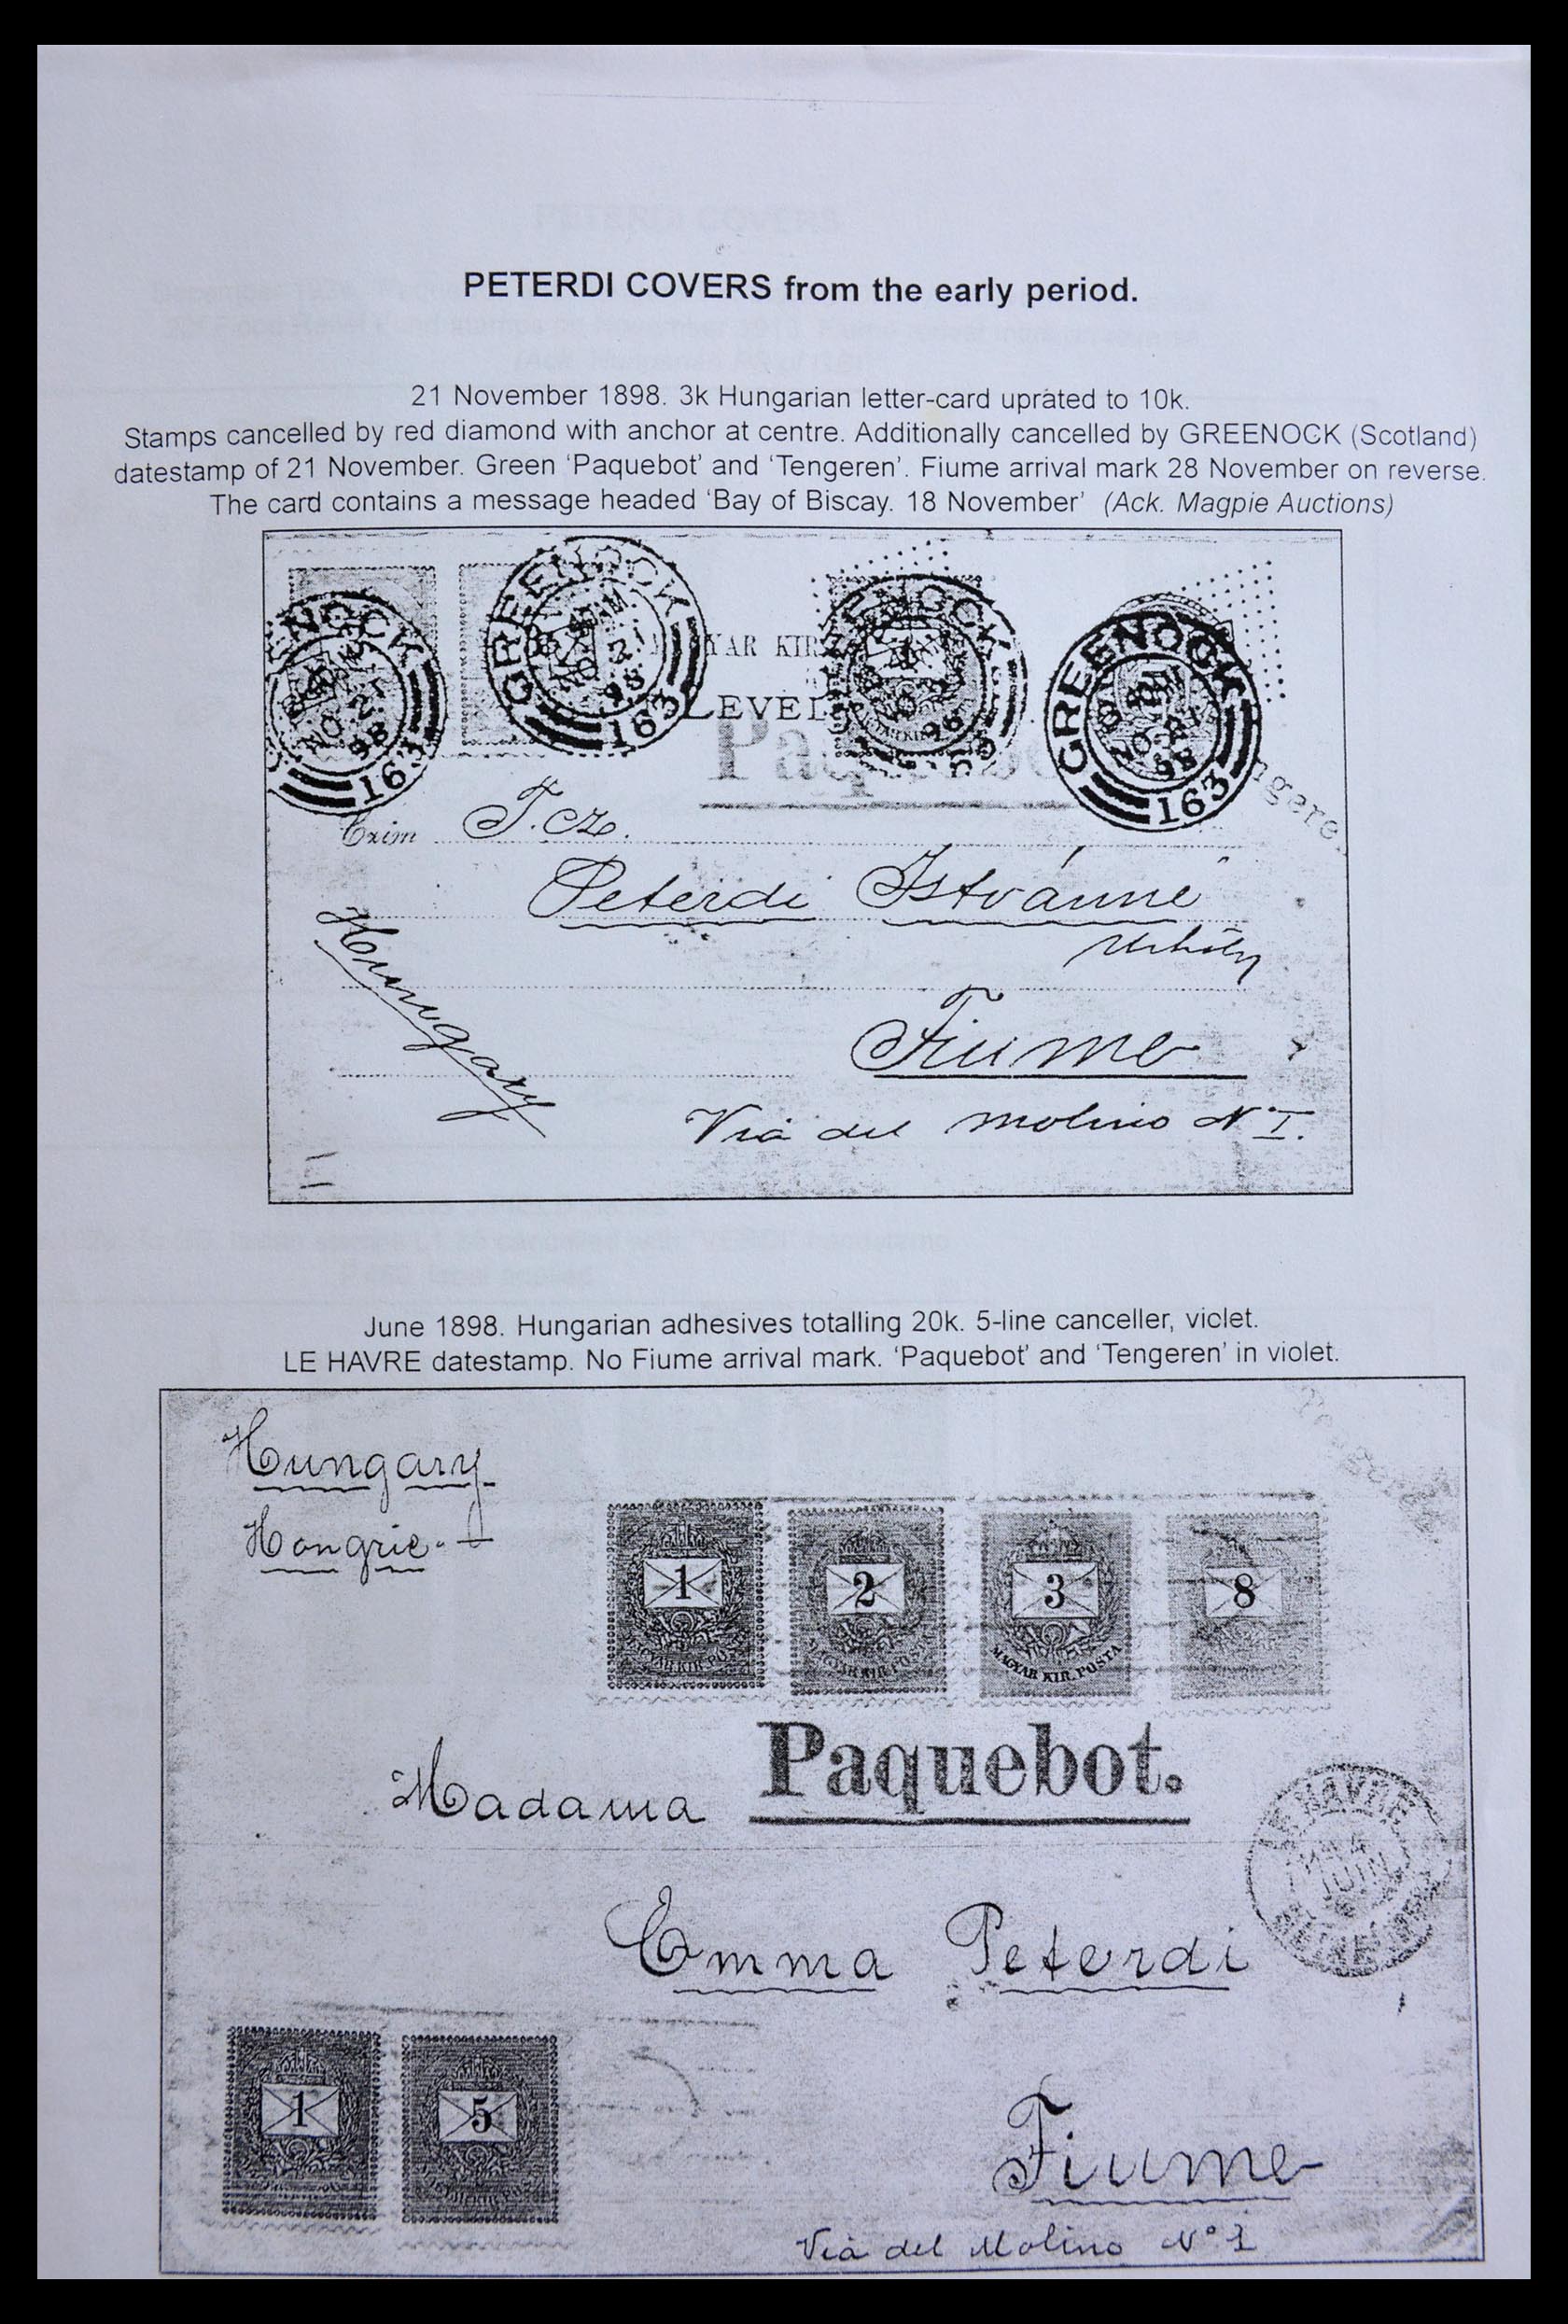 PETERDI COVERS from the early period.
21 November 1898. 3k Hungarian letter-card uprated to 10k.
Stamps cancelled by red diamond with anchor at centre. Additionally cancelled by GREENOCK (Scotland)
datestamp of 21 November. Green ‘Paquebot’ and ‘Tengeren’. Fiume arrival mark 28 November on reverse.
The card contains a message headed ‘Bay of Biscay. 18 November’ (Ack. Magpie Auctions)
GREENOCK
NO 21
98
163
GREENOCK
NO 21
98
163
GREENOCK
NO 21
98
163
YAR KIR
LEVEL
Paquebot
ngere
Czim T. cz.
Peterdi Istvánné
Fiume
Hungary
Via del Molino N° I.
June 1898. Hungarian adhesives totalling 20k. 5-line canceller, violet.
LE HAVRE datestamp. No Fiume arrival mark. ‘Paquebot’ and ‘Tengeren’ in violet.
Hungary
Hongrie.
1
2
3
8
MAGYAR KIR. POSTA
MAGYAR KIR. POSTA
MAGYAR KIR. POSTA
Paquebot.
Madama
LE HAVRE
JUIN
Emma Peterdi
1
5
Fiume
Via del Molino N° 1